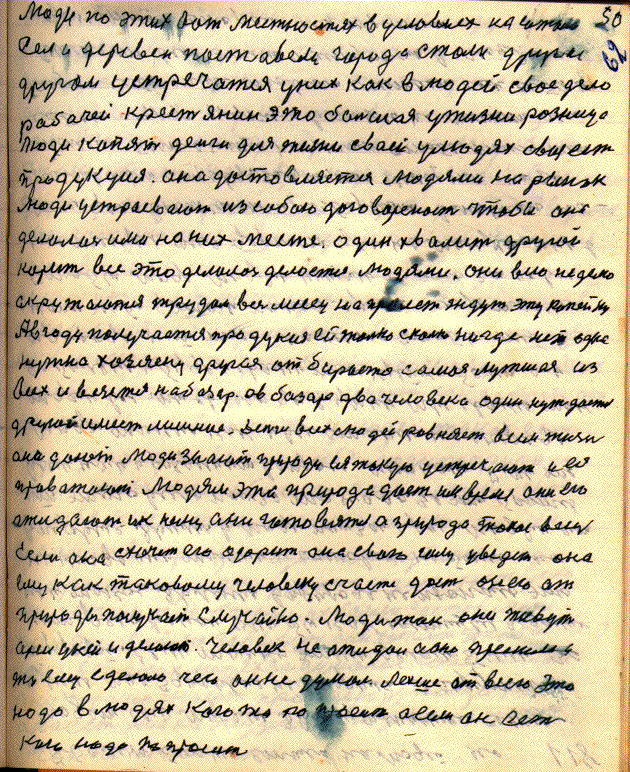 50
62
Люди по этих вот местностях в условиях
сел и деревен поставели города столи друг с
другом устречатся у них как в людей свое дело
рабачей крестянин это болшая у жизни розница
Люди копят денги для жизни своей у людях своя ест
продукция. она доставляется людями на рынок
Люди устраевают из собою договореност чтобы оно
делалос или на них месте. один хвалит другой
корит все это делалос делается людями. они всю неделю
скружаются трудом вес месец на ждут эту копейку
А в году получается продукция ей толко сколко нигде нет одна
нужна хозяену другая отбирается самая лутшая из
всех и везется на базар. а в базаре два человека один нуждается
другой имеет лишние. всех людей ровняет всем жизн
она дают Люди знают природу ея такую устречают и ея
проважают Людям эта природа дает их время они его
ожидают их они готовятся а природа такое
Если она схочет его одарит она свою силу уведет она
ему как таковому человеку счасте даст он его от
природы получает случайно. Люди так они живут
и делают. Человек не ожидал а оно пришло и
ему сделало чего он не думал Легше от всего это
надо в людях кого то по просит а если он ест
кого надо попросит